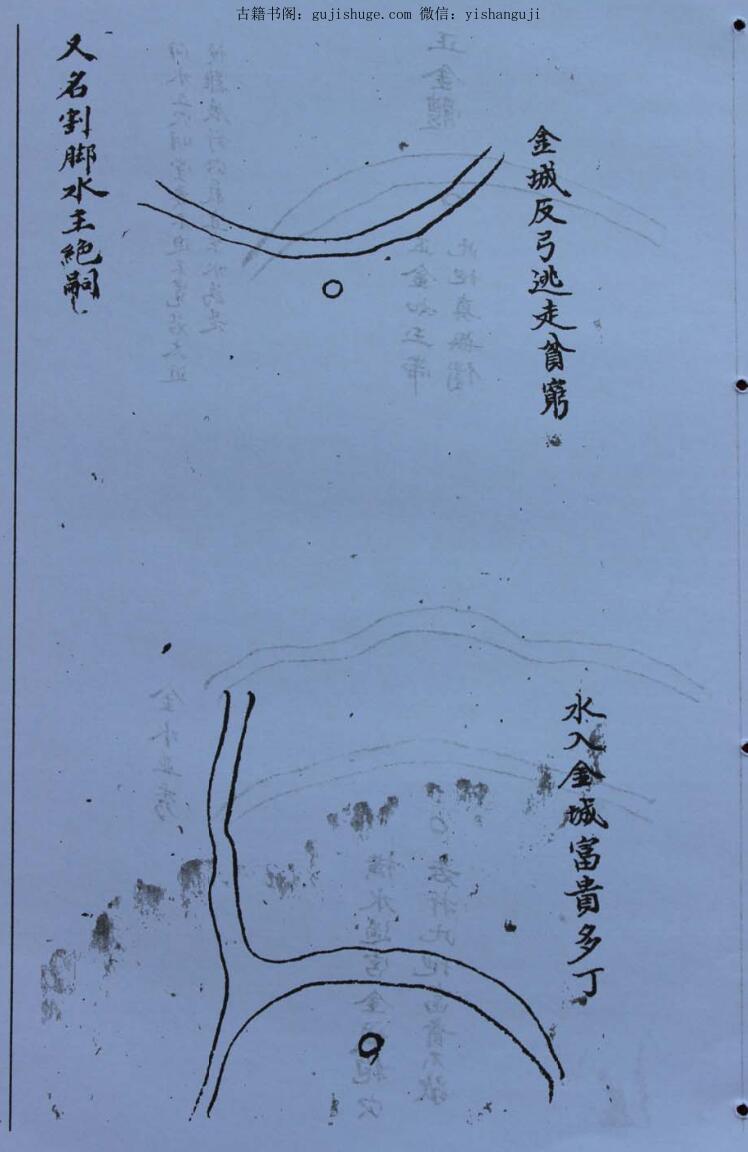 古籍书阁：gujishuge.com 微信：yishanguji
金城反弓逃走貧窮
又名割脚水主絶嗣
水入金城富貴多丁